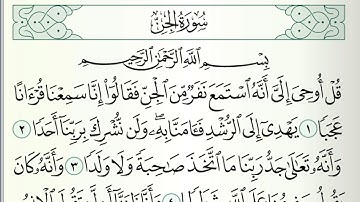 سُورَةُ الجِنِّ
بِسْمِ ٱللَّهِ ٱلرَّحْمَٰنِ ٱلرَّحِيمِ
قُلْ أُوحِيَ إِلَيَّ أَنَّهُ ٱسْتَمَعَ نَفَرٌ مِّنَ ٱلْجِنِّ فَقَالُوٓا۟ إِنَّا سَمِعْنَا قُرْءَانًا
عَجَبًا ١ يَهْدِىٓ إِلَى ٱلرُّشْدِ فَـَٔامَنَّا بِهِۦ وَلَن نُّشْرِكَ بِرَبِّنَآ أَحَدًا ٢
وَأَنَّهُۥ تَعَٰلَىٰ جَدُّ رَبِّنَا مَا ٱتَّخَذَ صَٰحِبَةً وَلَا وَلَدًا ٣ وَأَنَّهُۥ كَانَ